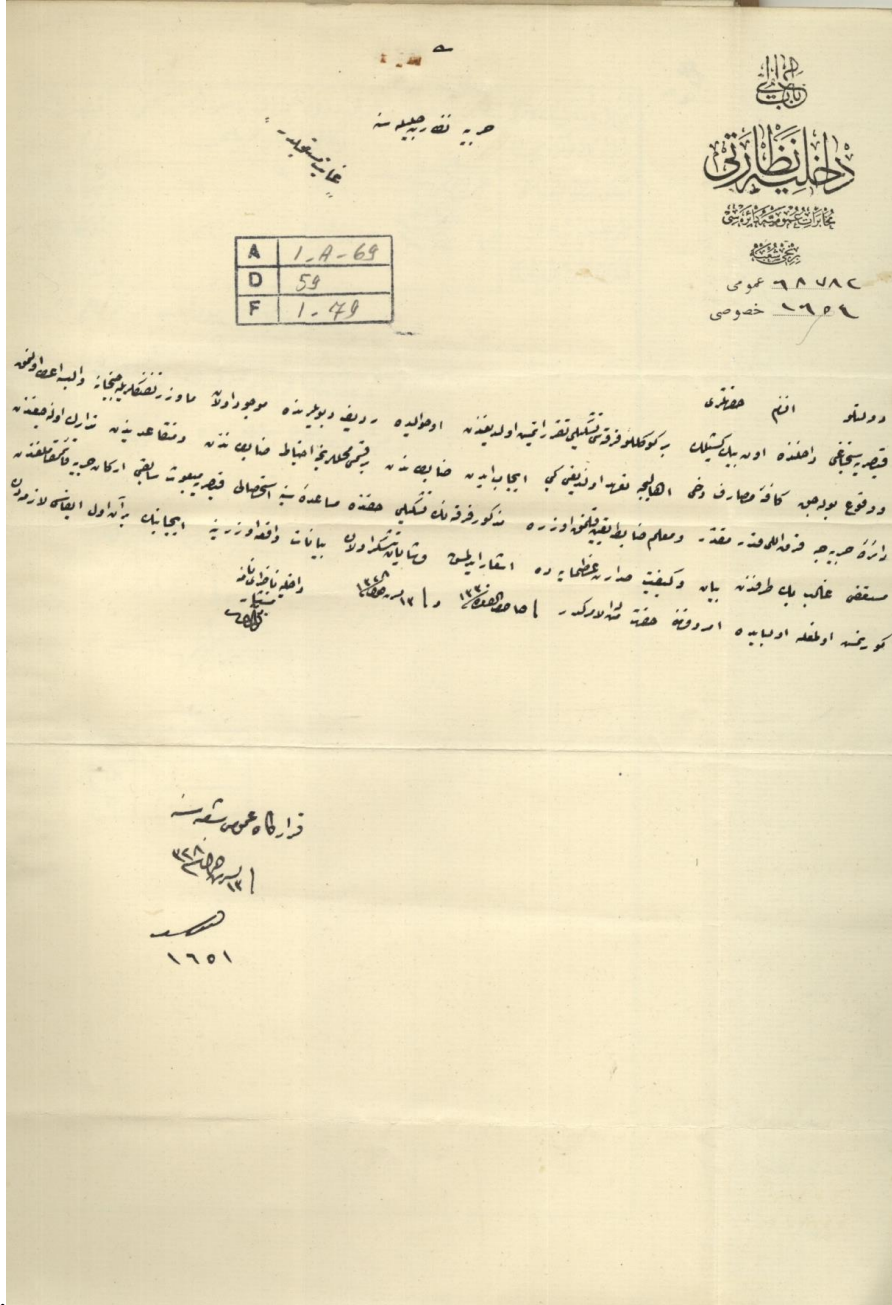 باب عالی
داخلیه نظارتی
مخابرات عمومیه دائره‌سی
برنجی شعبه
عمومی ٦٨٧٨٢
خصوصی ١٦٥٤
حربیه نظارت جلیله‌سنه
غایت مستعجلدر
A 1-A-69
D 59
F 1-79
دولتلو افندم حضرتلری
قیصری سنجاغی داخلنده اون بیك کشیلك بر کوکللو فرقه‌سی تشکیلی تقرر ایتمش اولدیغندن اوحوالیده ردیف دپولرنده موجود اولان ماوزر تفنکلریله تجهیز والباس اولنمق
ووقوع بوله‌جق کافه مصارف دخی اهالیجه تعهد اولندیغی کبی ایجاب ایدن ضابطاندن بر قسمی محللرنجه احتیاط ضابطاندن ومتقاعدیندن تدارك اوله‌جغندن
دائره حربیه‌جه قرق اللی قدر مقتدر ومعلم ضابط تعیین قلنمق اوزره مذکور فرقه‌نك تشکیلی حقنده مساعده سنیه استحصالی قیصری مبعوث سابقی ارکان حربیه قائممقاملغندن
مستعفی غالب بك طرفندن بیان وکیفیت صدارت عظمایه ده اشعار ایدلمش وشایان تشکر اولان بیانات واقعه اوزرینه ایجابنك بر آن اول ایفاسی لازمه‌دن
کورنمش اولمغله اولبابده امر وفرمان حضرت من له الامرکدر
داخلیه ناظری نامنه
مستشار
قرارکاه عمومی شعبه‌سنه
١٦٥١